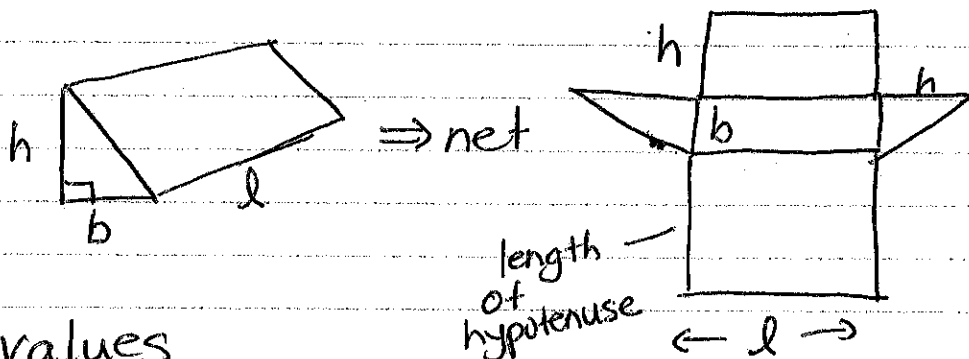 h
b
l
⇒ net
h
h
b
length
of
hypotenuse
← l →
values